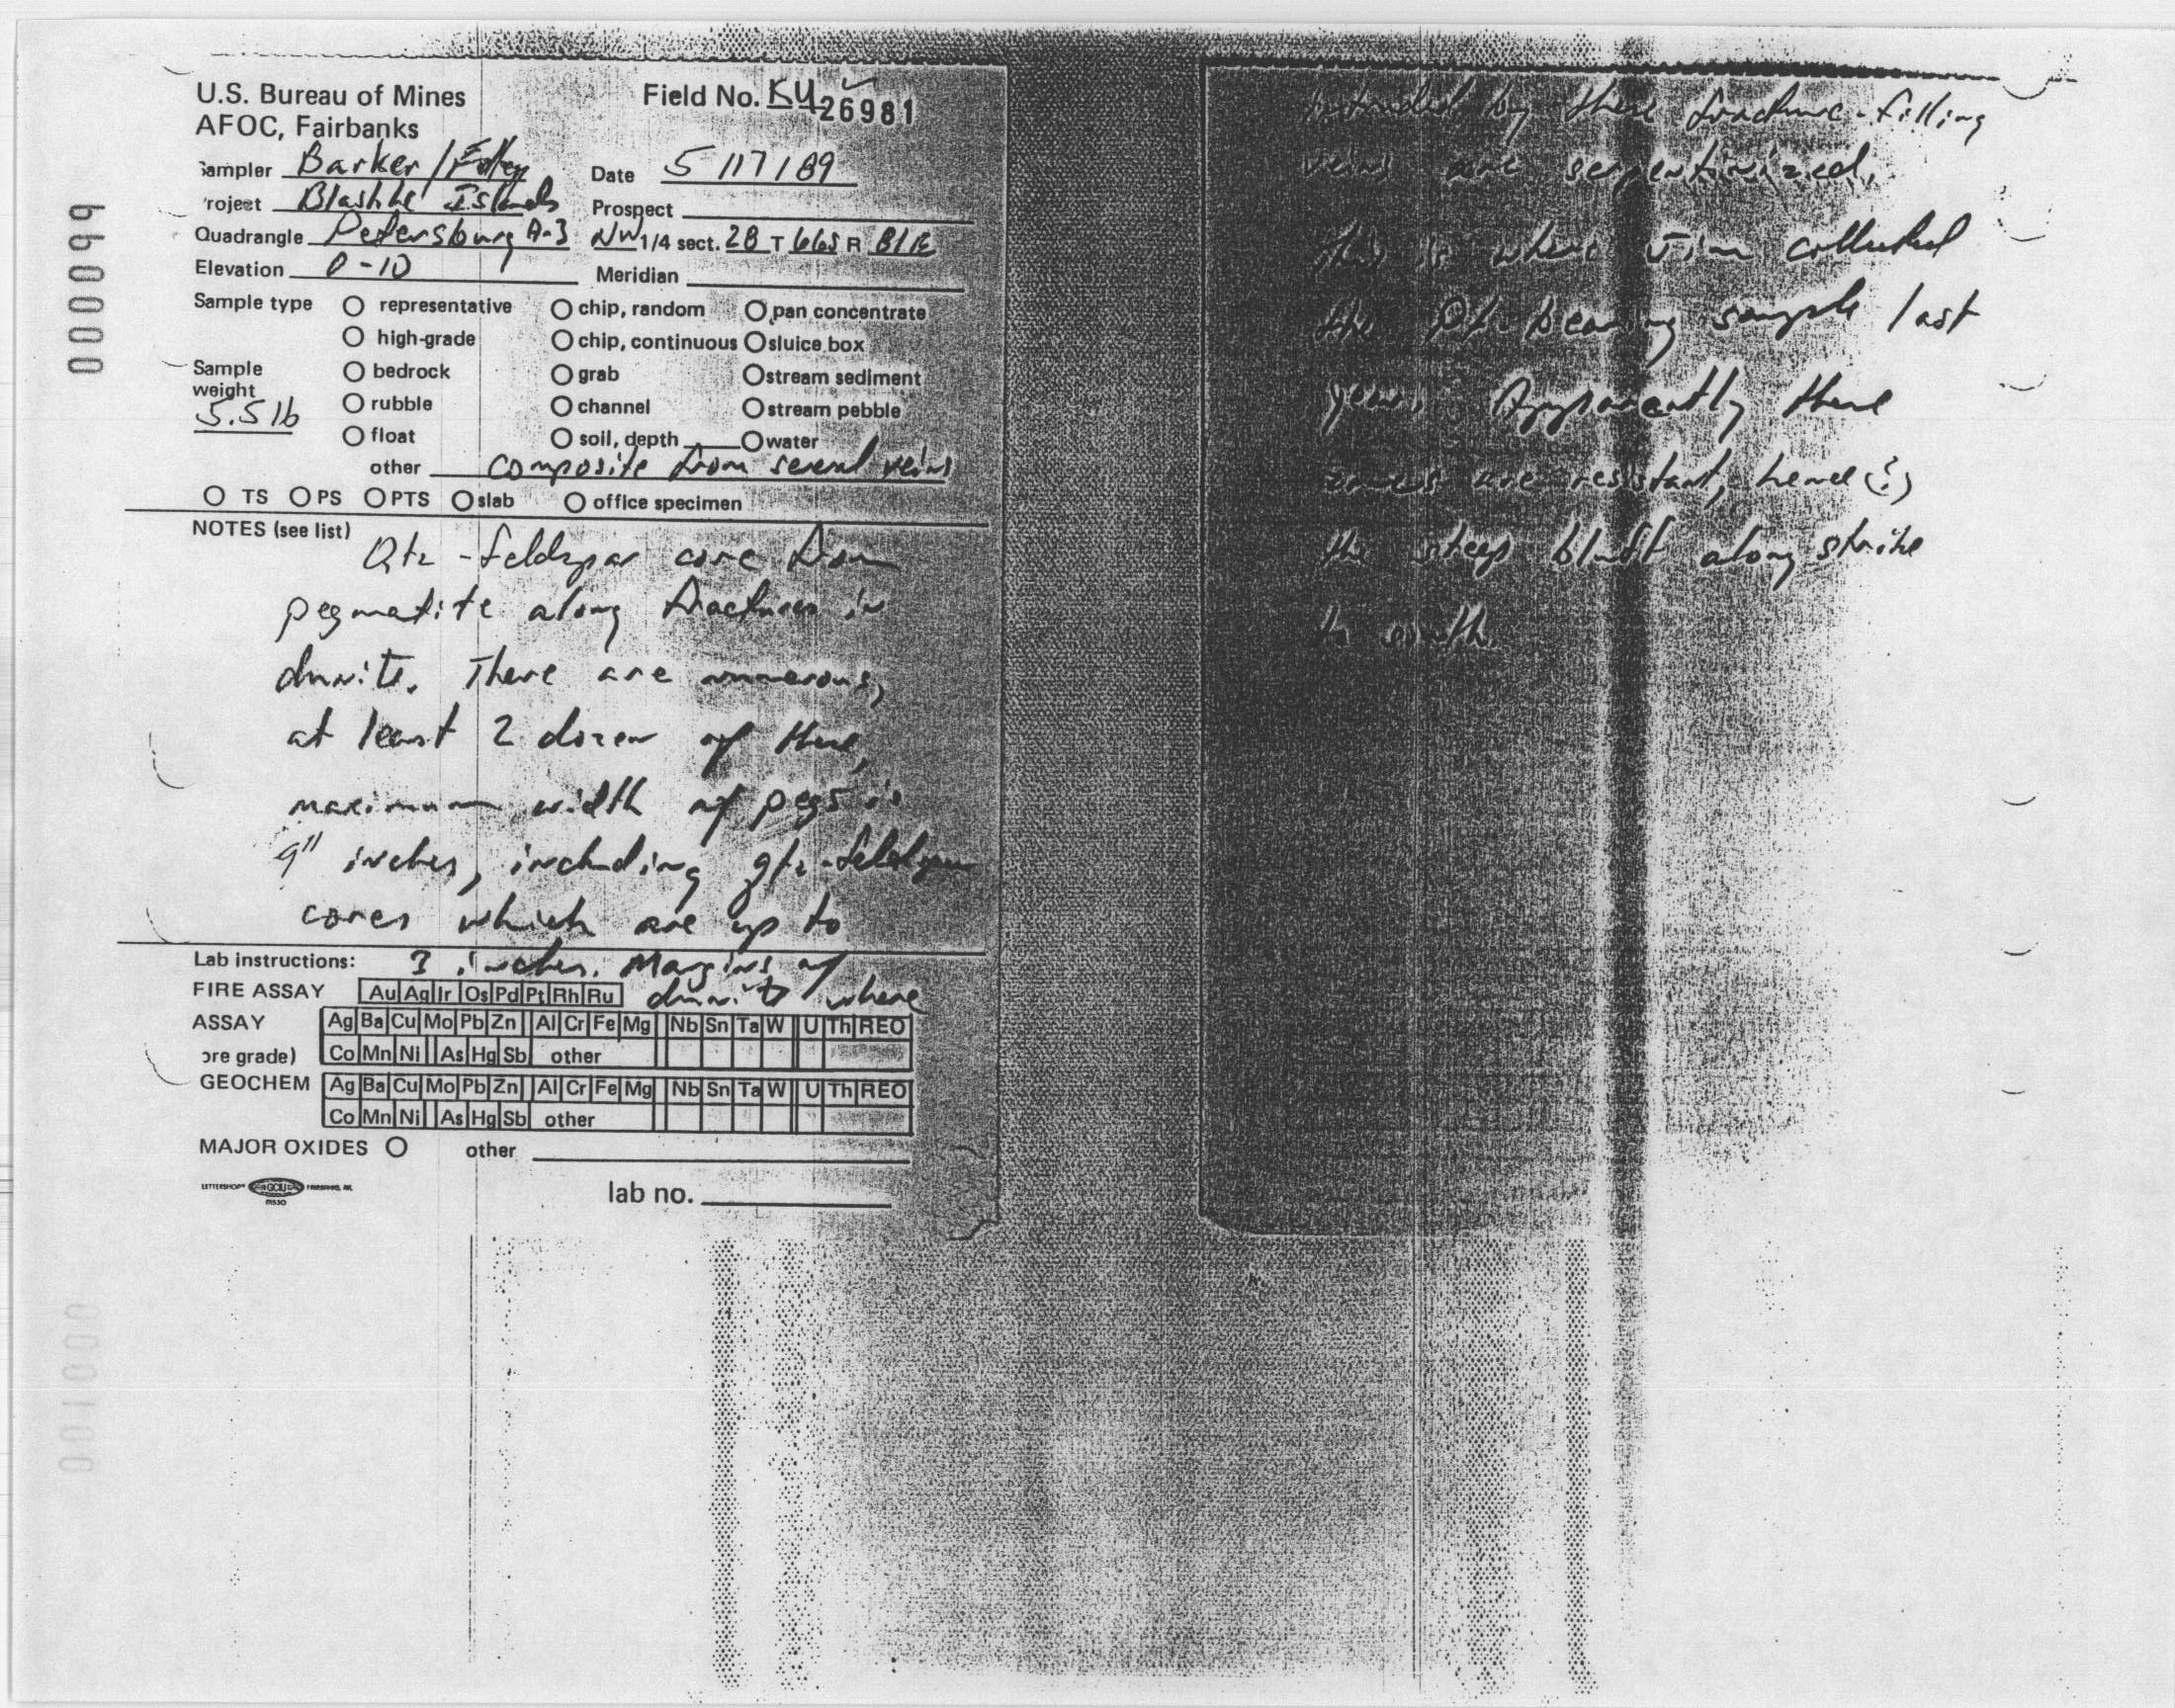 U.S. Bureau of Mines
AFOC, Fairbanks
Field No. KU 26981
Sampler Barker / Foley
Date 5 / 17 / 89
Project Blashke Islands
Prospect
Quadrangle Petersburg A-3
NW 1/4 sect. 28 T 66S R 81E
Elevation 0-10
Meridian
Sample type
representative
chip, random
pan concentrate
high-grade
chip, continuous
sluice box
Sample weight
5.5 lb
bedrock
grab
stream sediment
rubble
channel
stream pebble
float
soil, depth
water
other composite from several veins
TS PS PTS slab office specimen
NOTES (see list)
Qtz-feldspar core from
pegmatite along fractures in
dunite. There are numerous,
at least 2 dozen of these,
maximum width of pegs is
9" inches, including qtz-feldspar
cores which are up to
Lab instructions: 3 inches. Margins of
FIRE ASSAY Au Ag Ir Os Pd Pt Rh Ru dunite where
ASSAY Ag Ba Cu Mo Pb Zn Al Cr Fe Mg Nb Sn Ta W U Th REO
ore grade) Co Mn Ni As Hg Sb other
GEOCHEM Ag Ba Cu Mo Pb Zn Al Cr Fe Mg Nb Sn Ta W U Th REO
Co Mn Ni As Hg Sb other
MAJOR OXIDES other
LETTERSHOP FAIRBANKS, AK.
lab no.
intruded by these fracture-filling
veins are serpentinized.
This is where Jim collected
the Pt-bearing sample last
year. Apparently these
zones are resistant, hence (?)
the steep bluff along strike
to south.
000099
000100